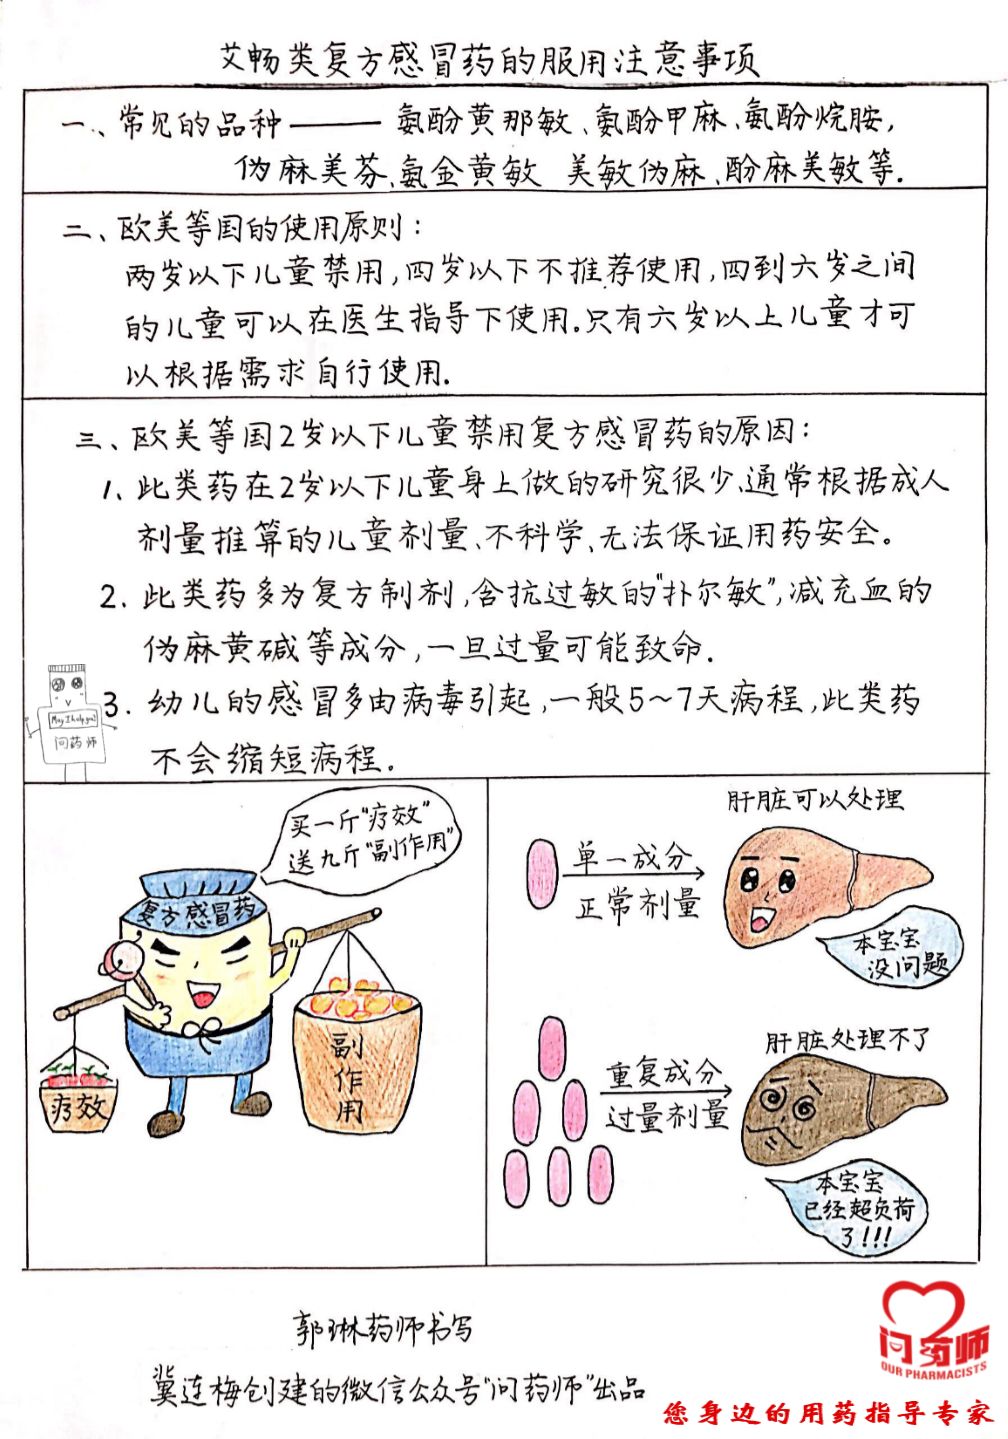 艾畅类复方感冒药的服用注意事项
一、常见的品种——氨酚黄那敏、氨酚甲麻、氨酚烷胺,
伪麻美芬、氨金黄敏 美敏伪麻、酚麻美敏等.
二、欧美等国的使用原则:
两岁以下儿童禁用,四岁以下不推荐使用,四到六岁之间
的儿童可以在医生指导下使用.只有六岁以上儿童才可
以根据需求自行使用.
三、欧美等国2岁以下儿童禁用复方感冒药的原因:
1、此类药在2岁以下儿童身上做的研究很少、通常根据成人
剂量推算的儿童剂量、不科学、无法保证用药安全。
2.此类药多为复方制剂,含抗过敏的"扑尔敏",减充血的
伪麻黄碱等成分,一旦过量可能致命.
3.幼儿的感冒多由病毒引起,一般5~7天病程,此类药
不会缩短病程.
May I help you?
问药师
买一斤"疗效"
送九斤"副作用"
复方感冒药
疗效
副
作
用
肝脏可以处理
单一成分
正常剂量
本宝宝
没问题
肝脏处理不了
重复成分
过量剂量
本宝宝
已经超负荷
了!!!
郭琳药师书写
冀连梅创建的微信公众号"问药师"出品
问药师
OUR PHARMACISTS
您身边的用药指导专家